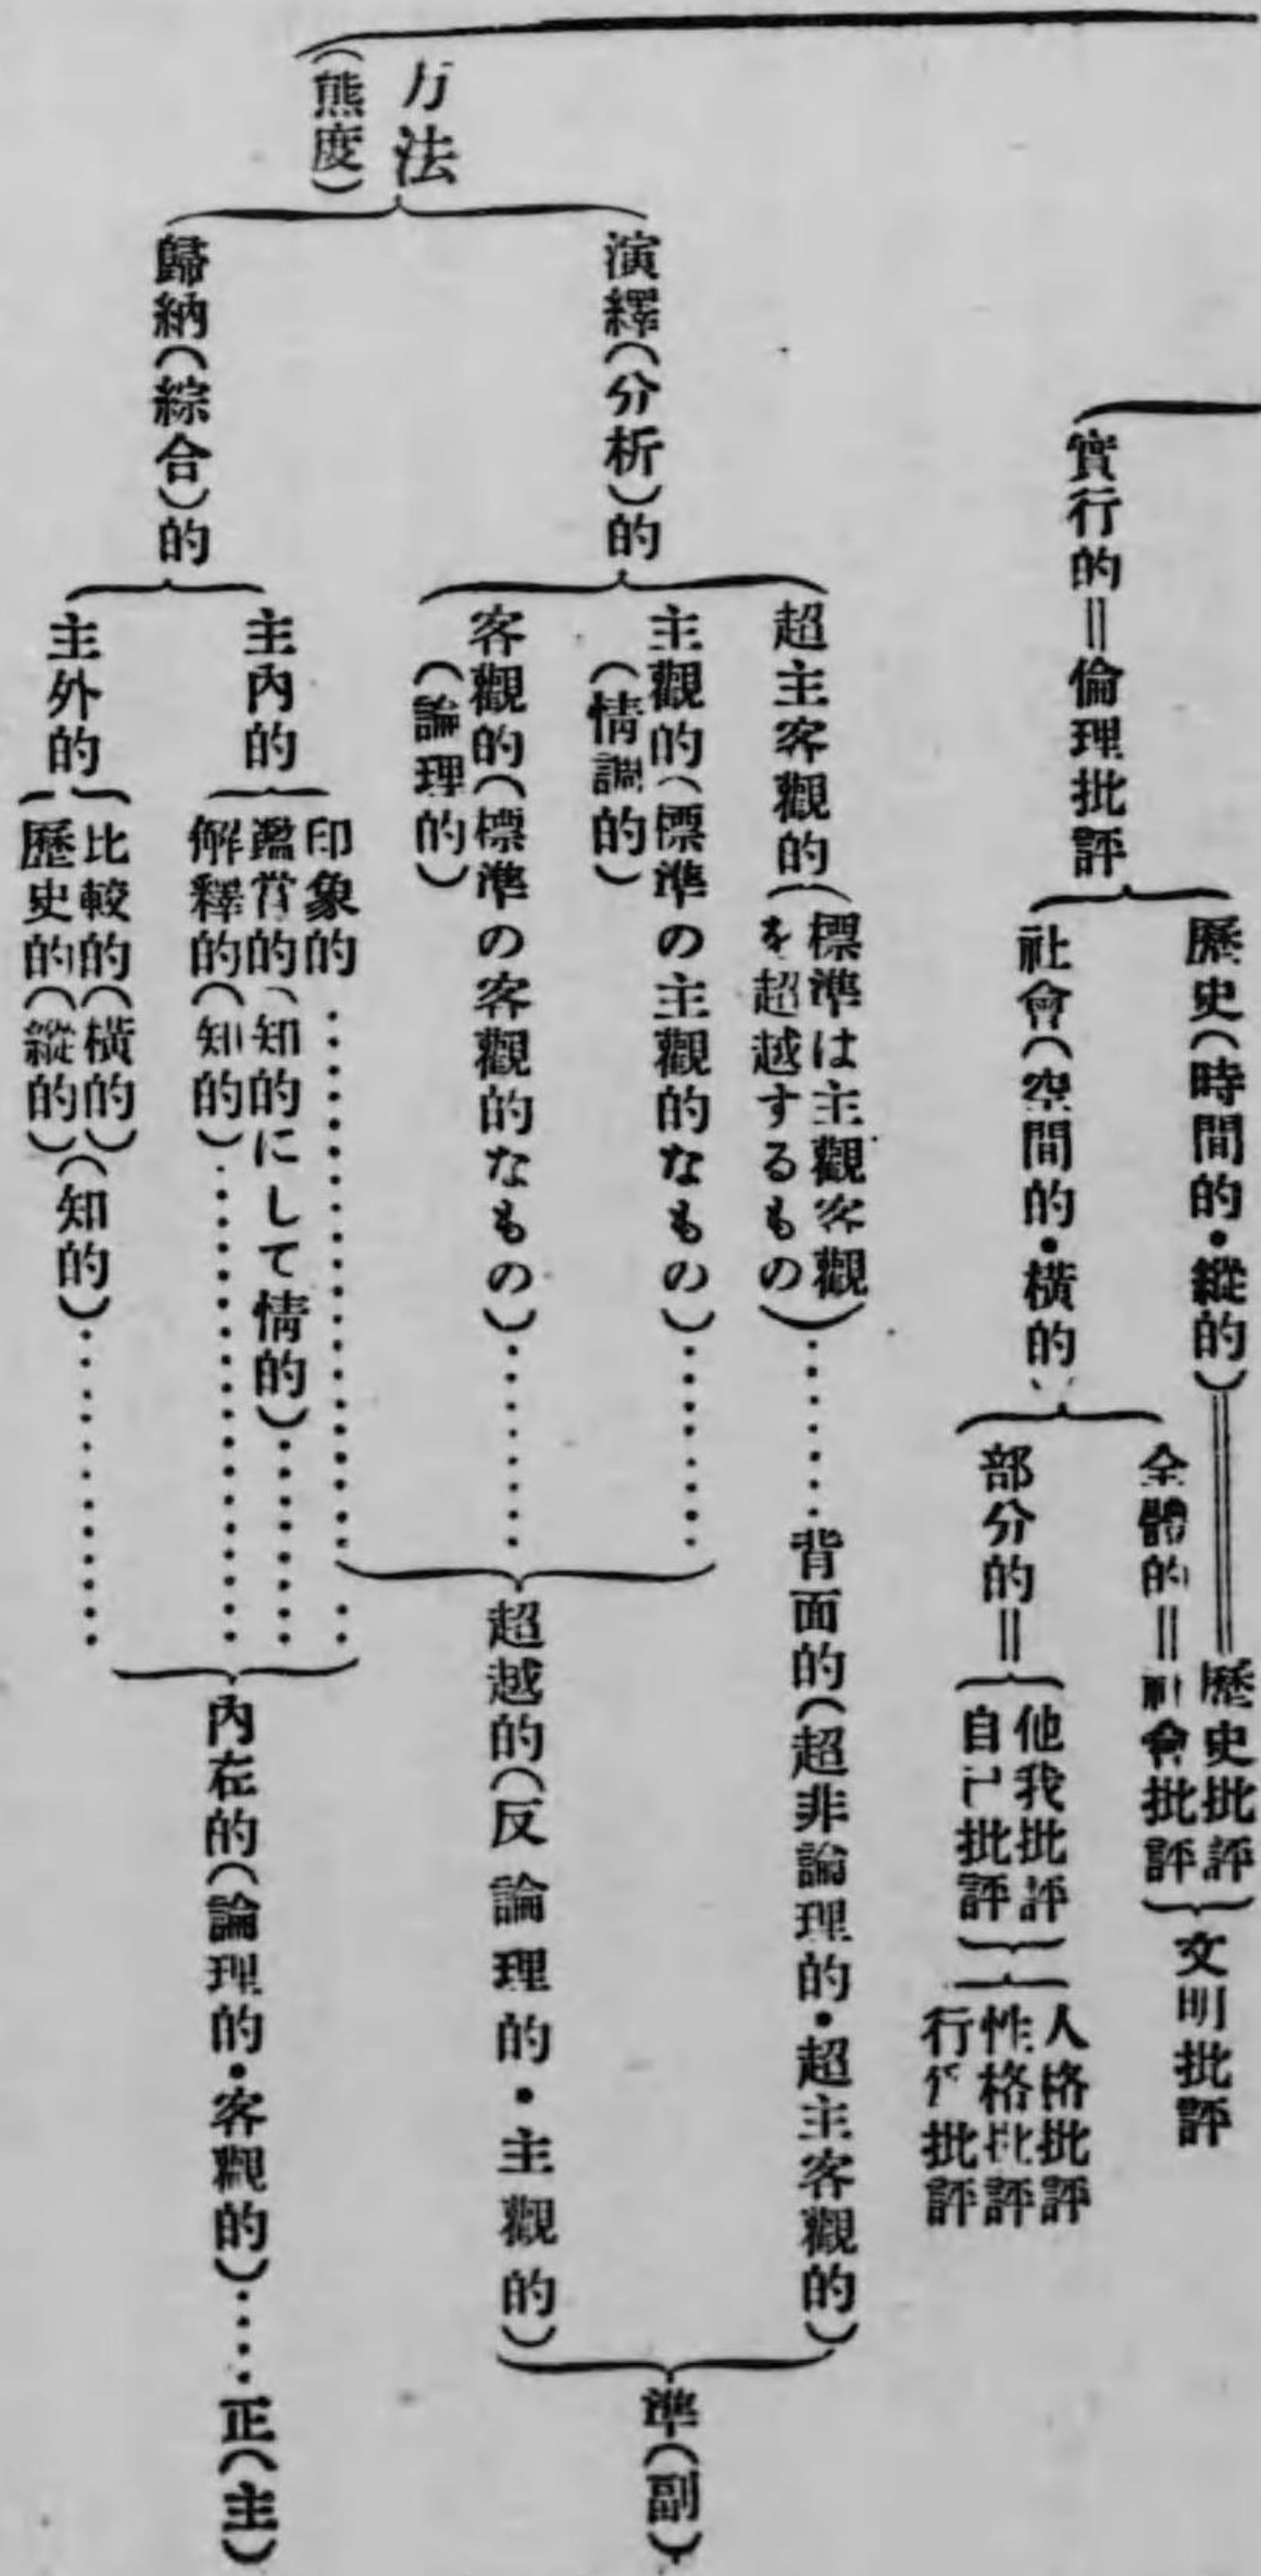 實行的＝倫理批評
歷史（時間的・縱的）＝歷史批評
社會（空間的・橫的）
全體的＝社會批評
文明批評
部分的＝
他我批評
自己批評
人格批評
性格批評
行爲批評
方法
（態度）
演繹（分析）的
超主客觀的（標準は主觀客觀
を超越するもの）……背面的（超非論理的・超主客觀的）
主觀的（標準の主觀的なもの）……
（情調的）
客觀的（標準の客觀的なもの）……
（論理的）
超越的（反論理的・主觀的）
準（副）
歸納（綜合）的
主內的
印象的……
鑑賞的（知的にして情的）……
解釋的（知的）……
主外的
比較的（橫的）
歷史的（縱的）
（知的）……
內在的（論理的・客觀的）……正（主）